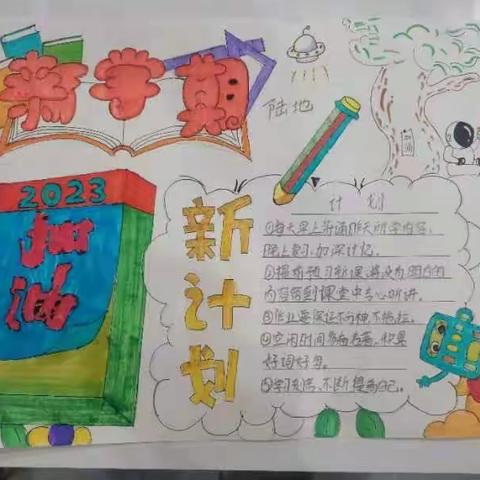 新学期
陆地
2023
新计划
计划
①每天早上背诵昨天所学内容,
晚上复习,加深记忆。
②提前预习新课,将没有明白的
内容留到课堂中专心听讲。
③作业要保证不分神不拖拉。
④空闲时间多看名著,积累
好词好句。
⑤学习方法,不断提高自己。